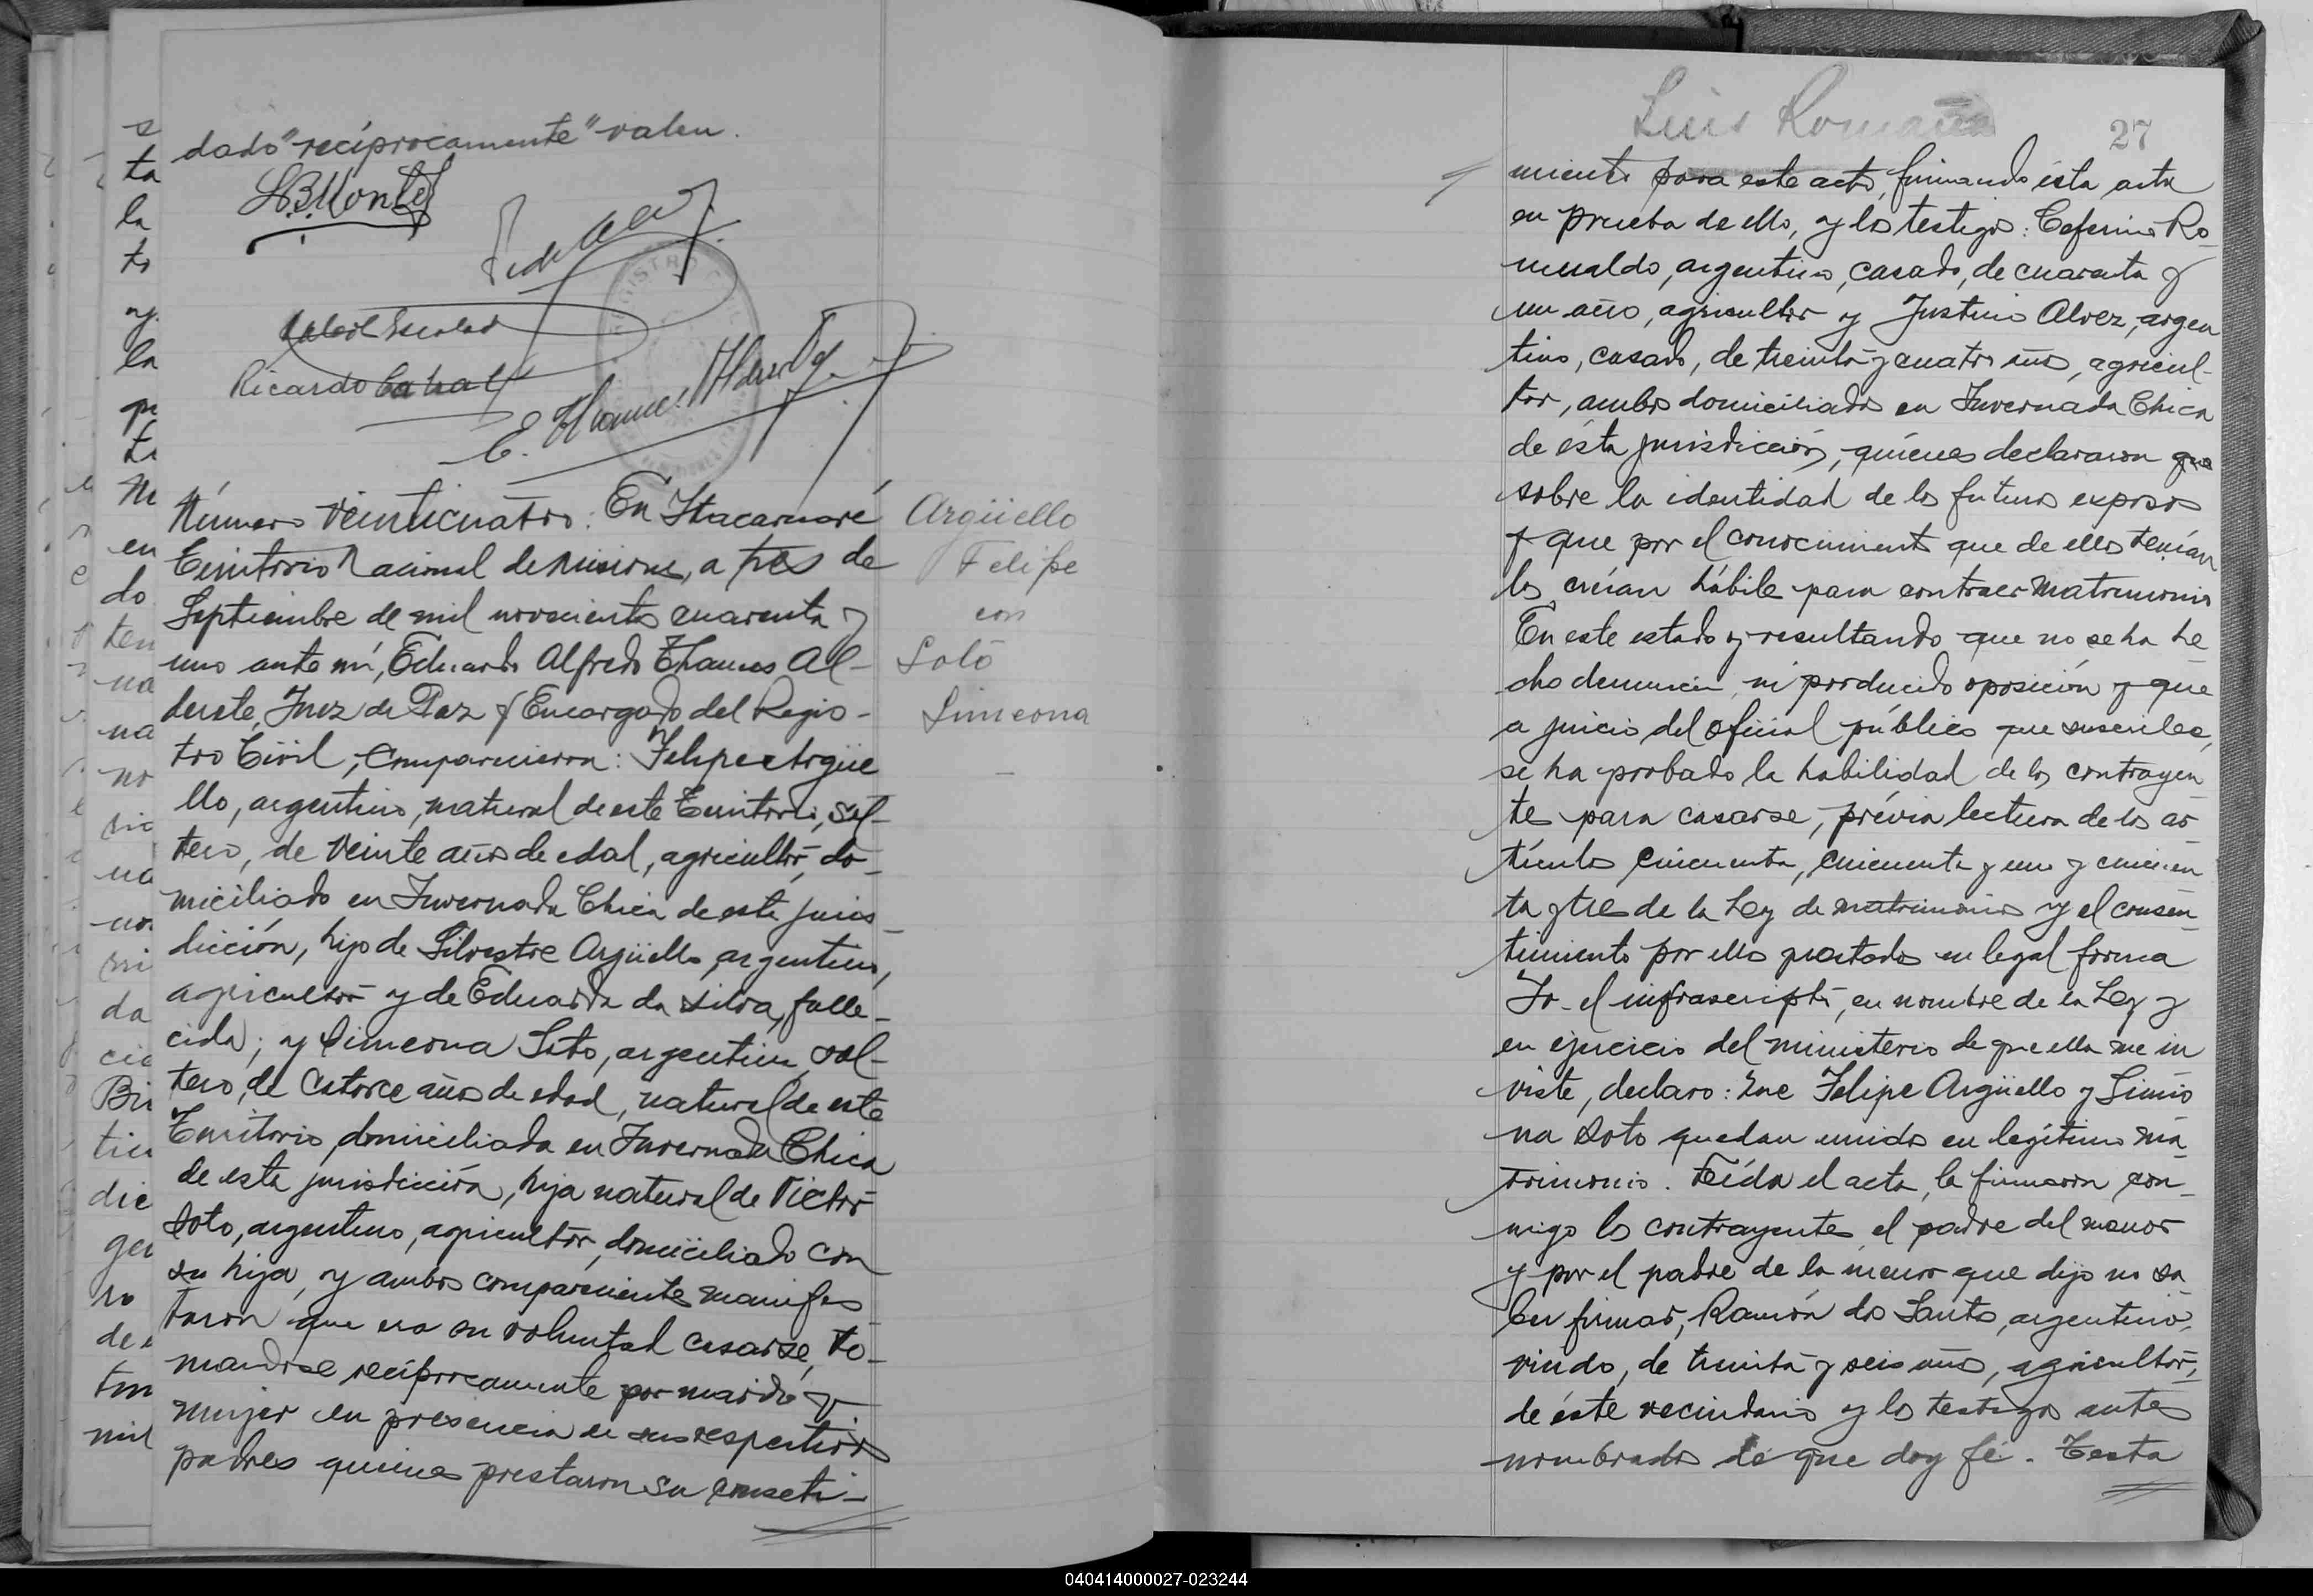 dado "recíprocamente" valen.
Ricardo Cabral
Número veinticuatro: En Itacaruaré
Territorio Nacional de Misiones, a tres de
Septiembre de mil novecientos cuarenta y
uno ante mí, Eduardo Alfredo Thames Al-
derete, Juez de Paz y Encargado del Regis-
tro Civil, comparecieron: Felipe Argüe
llo, argentino, natural de este Territorio, sol-
tero, de veinte años de edad, agricultor, do-
miciliado en Invernada Chica de esta juris-
dicción, hijo de Silvestre Argüello, argentino,
agricultor y de Eduarda da Silva, falle-
cida; y Simeona Soto, argentina, sol-
tera, de catorce años de edad, natural de este
Territorio, domiciliada en Invernada Chica
de esta jurisdicción, hija natural de Victor
Soto, argentino, agricultor, domiciliado con
su hija, y ambos comparecientes manifes
taron que era su voluntad casarse, to-
mandose recíprocamente por marido y
mujer en presencia de sus respectivos
padres quienes prestaron su conseti-
Argüello
Felipe
con
Soto
Simeona
Luis Romaña
27
miento para este acto, firmando ésta acta
en prueba de ello, y los testigos: Ceferino Ro-
mualdo, argentino, casado, de cuarenta y
un año, agricultor y Justino Alvez, argen
tino, casado, de treinta y cuatro años, agricul-
tor, ambos domiciliados en Invernada Chica
de ésta jurisdicción, quiénes declararon que
sobre la identidad de los futuros esposos
y que por el conocimiento que de ellos tenían
los creían hábiles para contraer matrimonio
En este estado y resultando que no se ha he
cho denuncia, ni producido oposición y que
a juicio del oficial público que suscribe,
se ha probado la habilidad de los contrayen
tes para casarse, prévia lectura de los ar
tículos cincuenta, cincuenta y uno y cincuen
ta y tres de la Ley de matrimonio y el consen
timiento por ellos prestados en legal forma
Yo el infrascripto, en nombre de la Ley y
en ejercicio del ministerio de que ella me in
viste, declaro: Que Felipe Argüello y Simeo
na Soto quedan unidos en legítimo ma
trimonio. Leída el acta, la firmaron con-
migo los contrayentes, el padre del menor
y por el padre de la menor que dijo no sa
ber firmar, Ramón dos Santos, argentino,
viudo, de treinta y seis años, agricultor,
de éste vecindario y los testigos antes
nombrados de que doy fé. Testa
040414000027-023244